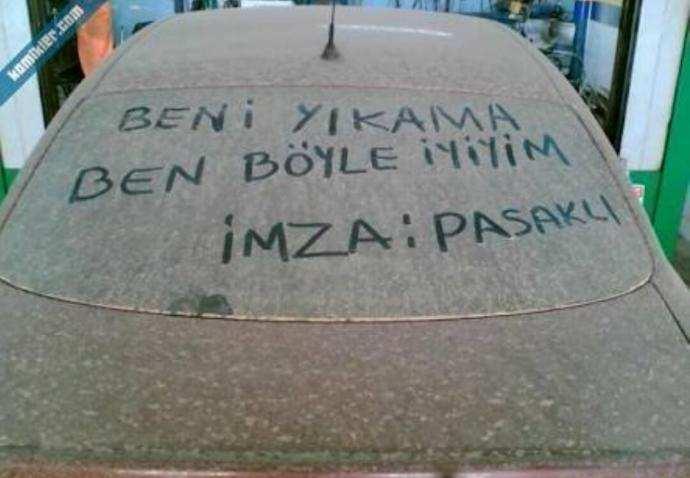 komikler.com
BENİ YIKAMA
BEN BÖYLE İYİYİM
İMZA: PASAKLI